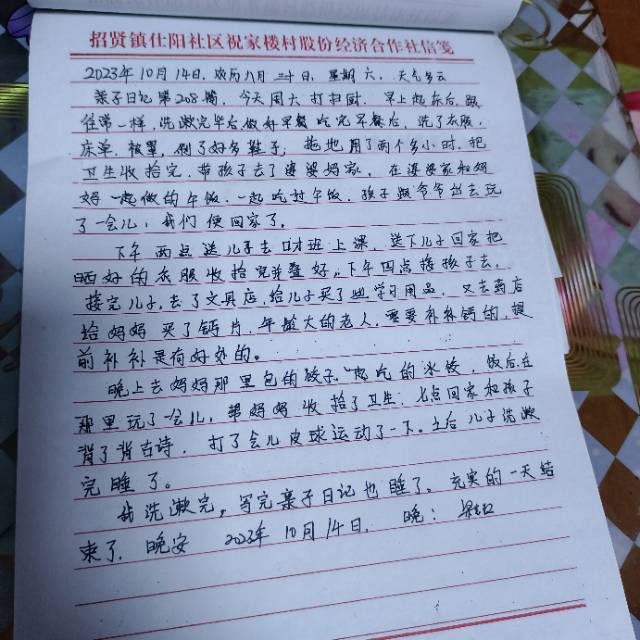 招贤镇仕阳社区祝家楼村股份经济合作社信笺
2023年10月14日，农历八月三十日，星期六，天气多云
亲子日记第208篇，今天周六打扫厨，早上起床后，跟
往常一样，洗漱完毕后做好早餐吃完早餐后，洗了衣服，
床单，被罩，刷了好多鞋子，拖地用了两个多小时，把
卫生收拾完，带孩子去了婆婆妈家，在婆婆家和妈
妈一起做的午饭，一起吃过午饭，孩子跟爷爷出去玩
了一会儿，我们便回家了。
下午两点送儿子去口才班上课，送下儿子回家把
晒好的衣服收拾完并叠好。下午四点接孩子去，
接完儿子，去了文具店，给儿子买了些学习用品，又去药店
给妈妈买了钙片，年龄大的老人，需要补补钙的，提
前补补是有好处的。
晚上去妈妈那里包的饺子吃的水饺，饭后在
那里玩了一会儿，帮妈妈收拾了卫生，七点回家和孩子
背了背古诗，打了会儿皮球运动了一下。之后儿子洗漱
完睡了。
我洗漱完，写完亲子日记也睡了，充实的一天结
束了，晚安 2023年10月14日，晚：